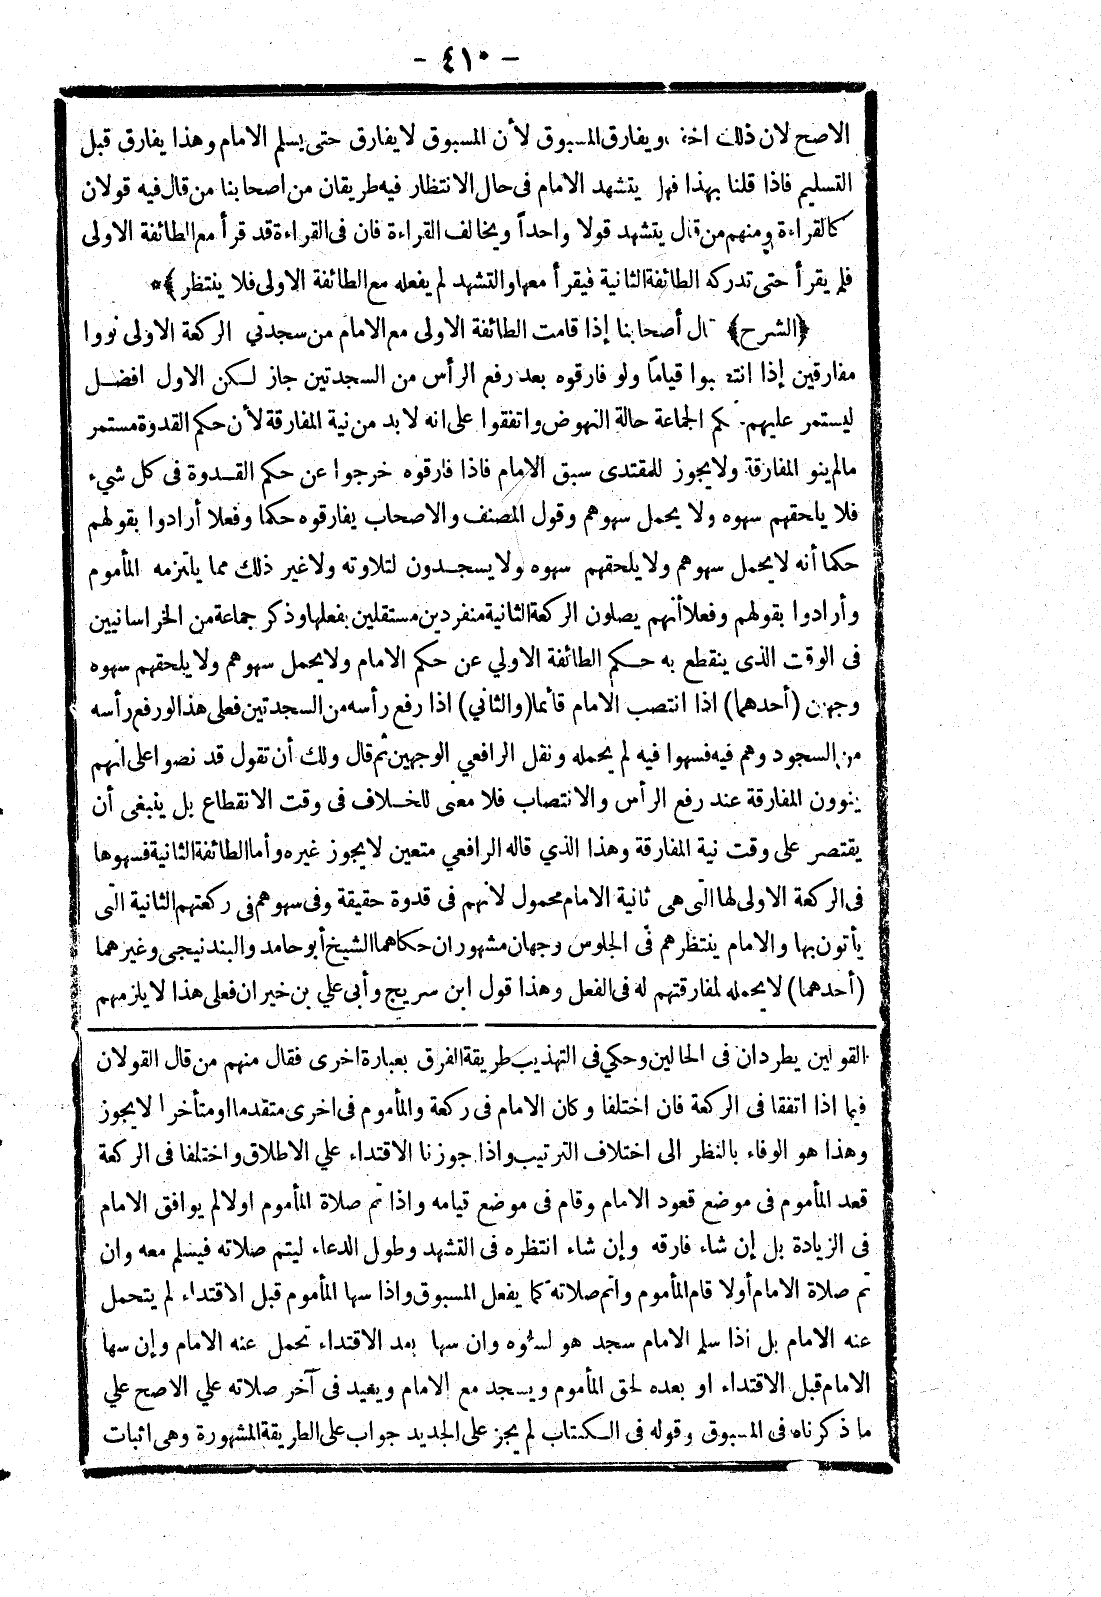 - ٤١٠ -
الاصح لان ذلك اخف ويفارق المسبوق لأن المسبوق لا يفارق حتى يسلم الامام وهذا يفارق قبل
التسليم فاذا قلنا بهذا فهل يتشهد الامام فى حال الانتظار فيه طريقان من اصحابنا من قال فيه قولان
كالقراءة ومنهم من قال يتشهد قولا واحداً ويخالف القراءة فان فى القراءة قد قرأ مع الطائفة الاولى
فلم يقرأ حتى تدركه الطائفة الثانية فيقرأ معها والتشهد لم يفعله مع الطائفة الاولى فلا ينتظر ﴾*
﴿الشرح﴾ قال أصحابنا إذا قامت الطائفة الاولى مع الامام من سجدتي الركعة الاولى نووا
مفارقين إذا انتصبوا قياماً ولو فارقوه بعد رفع الرأس من السجدتين جاز لكن الاول افضل
ليستمر عليهم حكم الجماعة حالة النهوض واتفقوا على انه لا بد من نية المفارقة لأن حكم القدوة مستمر
مالم ينو المفارقة ولا يجوز للمقتدى سبق الامام فاذا فارقوه خرجوا عن حكم القدوة فى كل شيء
فلا يلحقهم سهوه ولا يحمل سهوهم وقول المصنف والاصحاب يفارقوه حكما وفعلا أرادوا بقولهم
حكما أنه لا يحمل سهوهم ولا يلحقهم سهوه ولا يسجدون لتلاوته ولا غير ذلك مما يلتزمه المأموم
وأرادوا بقولهم وفعلا أنهم يصلون الركعة الثانية منفردين مستقلين بفعلها وذكر جماعة من الخراسانيين
فى الوقت الذى ينقطع به حكم الطائفة الاولي عن حكم الامام ولا يحمل سهوهم ولا يلحقهم سهوه
وجهين (أحدهما) اذا انتصب الامام قائما (والثاني) اذا رفع رأسه من السجدتين فعلى هذا لو رفع رأسه
من السجود وهم فيه فسهوا فيه لم يحمله ونقل الرافعي الوجهين ثم قال ولك أن تقول قد نصوا على انهم
ينوون المفارقة عند رفع الرأس والانتصاب فلا معنى للخلاف فى وقت الانقطاع بل ينبغى أن
يقتصر على وقت نية المفارقة وهذا الذي قاله الرافعي متعين لا يجوز غيره وأما الطائفة الثانية فسهوها
فى الركعة الاولى لها التى هى ثانية الامام محمول لانهم فى قدوة حقيقة وفى سهوهم فى ركعتهم الثانية التى
يأتون بها والامام ينتظرهم فى الجلوس وجهان مشهوران حكاهما الشيخ أبو حامد والبندنيجى وغيرهما
(أحدهما) لا يحمله لمفارقتهم له فى الفعل وهذا قول ابن سريج وأبى علي بن خيران فعلى هذا لا يلزمهم
القولين يطردان فى الحالين وحكي فى التهذيب طريقة الفرق بعبارة اخرى فقال منهم من قال القولان
فيما اذا اتفقا فى الركعة فان اختلفا وكان الامام فى ركعة والمأموم فى اخرى متقدما او متأخرا لا يجوز
وهذا هو الوفاء بالنظر الى اختلاف الترتيب واذا جوزنا الاقتداء علي الاطلاق واختلفا فى الركعة
قعد المأموم فى موضع قعود الامام وقام فى موضع قيامه واذا تم صلاة المأموم اولا لم يوافق الامام
فى الزيادة بل إن شاء فارقه وإن شاء انتظره فى التشهد وطول الدعاء ليتم صلاته فيسلم معه وان
تم صلاة الامام أولا قام المأموم واتم صلاته كما يفعل المسبوق واذا سها المأموم قبل الاقتداء لم يتحمل
عنه الامام بل اذا سلم الامام سجد هو لسهوه وان سها بعد الاقتداء تحمل عنه الامام وإن سها
الامام قبل الاقتداء او بعده لحق المأموم ويسجد مع الامام ويعيد فى آخر صلاته علي الاصح علي
ما ذكرناه فى المسبوق وقوله فى الكتاب لم يجز على الجديد جواب على الطريقة المشهورة وهى اثبات